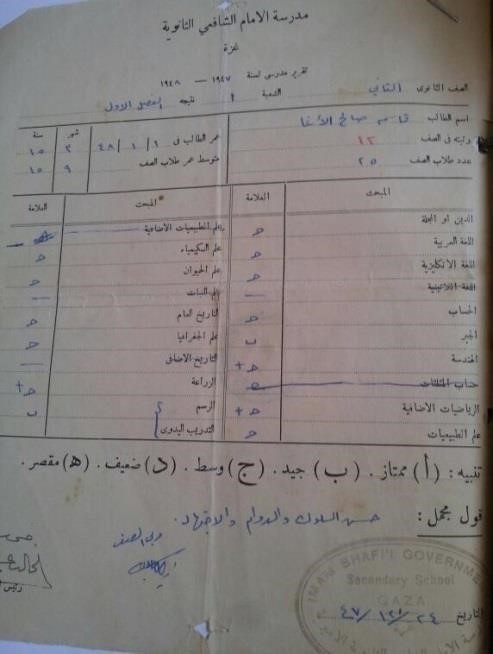 مدرسة الامام الشافعي الثانوية
غزة
تقرير مدرسي لسنة ١٩٤٧ — ١٩٤٨
الصف الثانوى الثاني الشعبة أ نتيجة الفصل الاول
اسم الطالب قاسم صالح الأغا
رتبته فى الصف ١٢
عدد طلاب الصف ٢٥
شهر سنة
عمر الطالب فى ١ / ١ / ٤٨ ٣ ١٥
متوسط عمر طلاب الصف ٩ ١٥
المبحث العلامة المبحث العلامة
الدين او المجلة
اللغة العربية
اللغة الانكليزية
اللغة اللاتينية —
الحساب
الجبر ب
الهندسة
حساب المثلثات
الرياضيات الاضافية
علم الطبيعيات
علم الطبيعيات الاضافية
علم الكيمياء
علم الحيوان
علم النبات —
التاريخ العام
علم الجغرافيا
التاريخ الاضافى —
الزراعة
الرسم ب
التدريب اليدوى
تنبيه : (أ) ممتاز . (ب) جيد . (ج) وسط . (د) ضعيف . (ه) مقصر .
قول مجمل : حسن السلوك والدوام والاجتهاد .
مربي الصف
التاريخ ٢٤ / ١٢ / ٤٧
IMAM SHAFI'I GOVERNMENT
Secondary School
GAZA